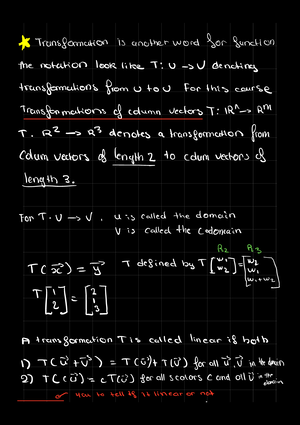 Transformation is another word for function
the notation look like T: U → V denoting
transformations from U to U For this course
Transformations of column vectors T: ℝⁿ → ℝᵐ
T. ℝ² → ℝ³ denotes a transformation from
Colum vectors of length 2 to colum vectors of
length 3.
For T. U → V. u is called the domain
V is called the Codomain
R₂ R₃
T(x⃗) = y⃗ T defined by T [w₁ w₂] = [w₂ w₁ w₁+w₂]
T [1 2] = [2 1 3]
A transformation T is called linear if both
1) T(u⃗ + v⃗) = T(u⃗) + T(v⃗) for all u⃗, v⃗ in the domain
2) T(cu⃗) = cT(u⃗) for all scalors c and all u⃗ in the domain
how to tell if it linear or not